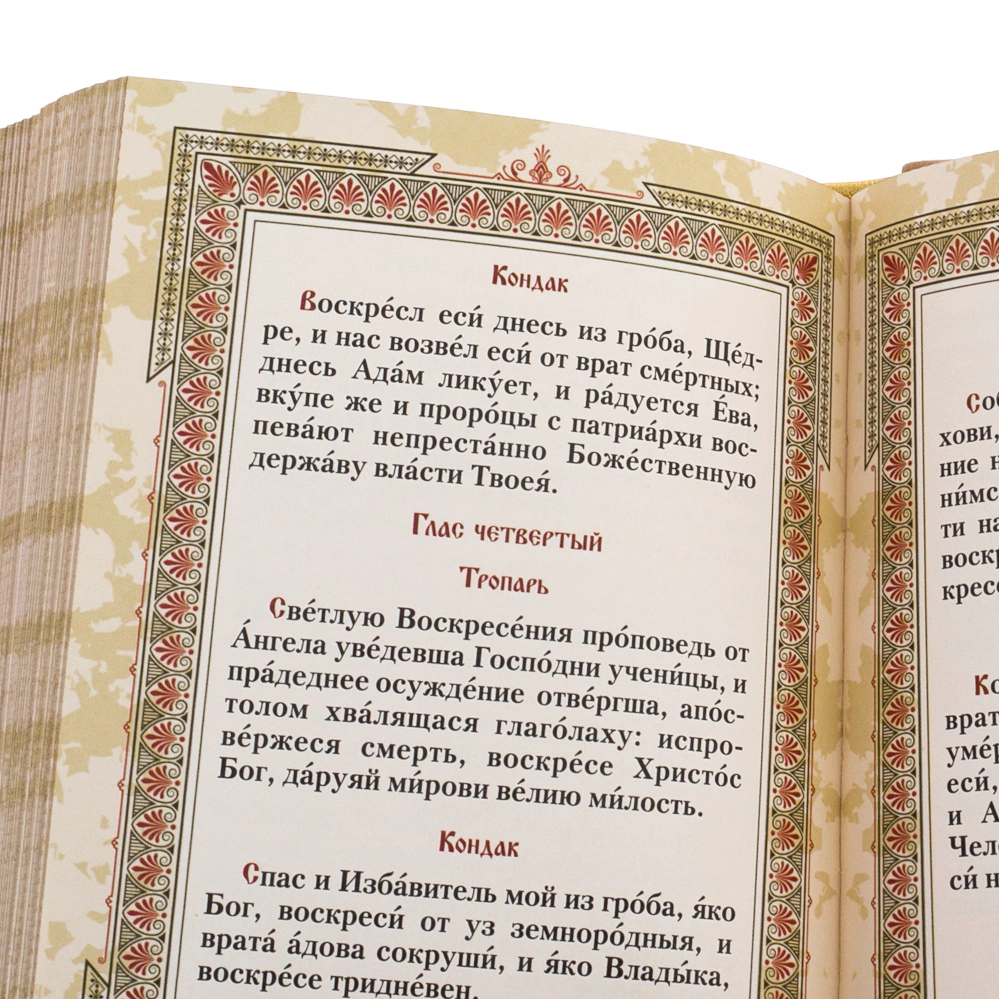 Кондак
Воскре́сл еси́ днесь из гро́ба, Ще́д-
ре, и нас возве́л еси́ от врат сме́ртных;
днесь Ада́м лику́ет, и ра́дуется Е́ва,
вку́пе же и проро́цы с патриа́рхи вос-
пева́ют непреста́нно Боже́ственную
держа́ву вла́сти Твоея́.
Глас четвертый
Тропарь
Све́тлую Воскресе́ния про́поведь от
А́нгела уве́девша Госпо́дни учени́цы, и
пра́деднее осужде́ние отве́ргша, апо́с-
толом хва́лящася глаго́лаху: испро-
ве́ржеся смерть, воскре́се Христо́с
Бог, да́руяй ми́рови ве́лию ми́лость.
Кондак
Спас и Изба́витель мой из гро́ба, я́ко
Бог, воскреси́ от уз земноро́дныя, и
врата́ а́дова сокруши́, и я́ко Влады́ка,
воскре́се тридне́вен.
хови,
ние
ти
и
си́